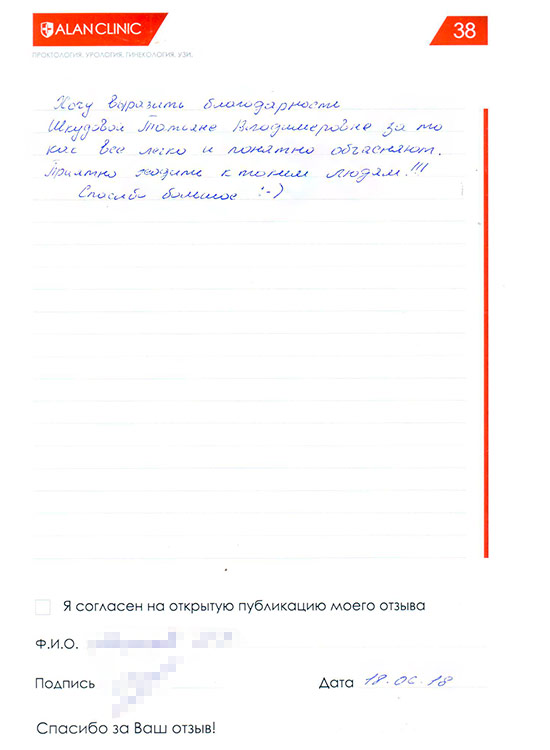 ALAN CLINIC
38
ПРОКТОЛОГИЯ. УРОЛОГИЯ. ГИНЕКОЛОГИЯ. УЗИ.
Хочу выразить благодарность
Шкудовой Татьяне Владимеровне за то
как все легко и понятно обчасняют.
Приятно ходить к таким людям!!!
Спасибо большое :-)
Я согласен на открытую публикацию моего отзыва
Ф.И.О.
Подпись
Дата 18.06.18
Спасибо за Ваш отзыв!